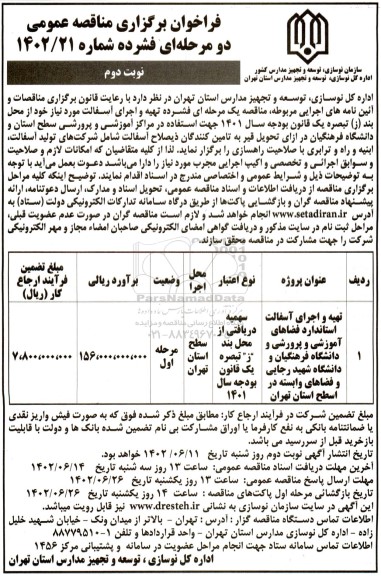 فراخوان برگزاری مناقصه عمومی
دو مرحله‌ای فشرده شماره ۱۴۰۲/۲۱
سازمان نوسازی، توسعه و تجهیز مدارس کشور
اداره کل نوسازی، توسعه و تجهیز مدارس استان تهران
نوبت دوم
اداره کل نوسازی، توسعه و تجهیز مدارس استان تهران در نظر دارد با رعایت قانون برگزاری مناقصات و
آئین نامه های اجرایی مربوطه، مناقصه یک مرحله ای فشرده تهیه و اجرای آسفالت مورد نیاز خود از محل
بند (ز) تبصره یک قانون بودجه سال ۱۴۰۱ جهت استفاده در مراکز آموزشی و پرورشی سطح استان و
دانشگاه فرهنگیان در ازای تحویل قیر به تامین کنندگان ذیصلاح آسفالت شامل شرکت‌های تولید آسفالت،
ابنیه و راه و ترابری با صلاحیت راهسازی را برگزار نماید، لذا از کلیه متقاضیان که امکانات لازم و صلاحیت
و سوابق اجرائی و تخصصی و اکیپ اجرایی مجرب مورد نیاز را دارا می‌باشد دعوت بعمل می‌آید با توجه
به توضیحات ذیل و شرایط عمومی و اختصاصی مندرج در اسناد اقدام نمایند. توضیح اینکه کلیه مراحل
برگزاری مناقصه از دریافت اطلاعات و اسناد مناقصه عمومی، تحویل اسناد و مدارک، ارسال دعوتنامه، ارائه
پیشنهاد مناقصه گران و بازگشایی پاکت‌ها از طریق درگاه سامانه تدارکات الکترونیکی دولت (ستاد) به
آدرس www.setadiran.ir انجام خواهد شد و لازم است مناقصه گران در صورت عدم عضویت قبلی،
مراحل ثبت نام در سایت مذکور و دریافت گواهی امضای الکترونیکی صاحبان امضاء مجاز و مهر الکترونیکی
شرکت را جهت مشارکت در مناقصه محقق سازند.
ردیف | عنوان پروژه | نوع اعتبار | محل اجرا | وضعیت | برآورد ریالی | مبلغ تضمین فرآیند ارجاع کار (ریال)
۱ | تهیه و اجرای آسفالت استاندارد فضاهای آموزشی و پرورشی و دانشگاه فرهنگیان و دانشگاه شهید رجایی و فضاهای وابسته در سطح استان تهران | سهمیه دریافتی از محل بند "ز" تبصره یک قانون بودجه سال ۱۴۰۱ | سطح استان تهران | مرحله اول | ۱۵۶,۰۰۰,۰۰۰,۰۰۰ | ۷,۸۰۰,۰۰۰,۰۰۰
مبلغ تضمین شرکت در فرآیند ارجاع کار: مطابق مبلغ ذکر شده فوق که به صورت فیش واریز نقدی
یا ضمانتنامه بانکی به نفع کارفرما یا اوراق مشارکت بی نام تضمین شده بانک ها و دولت با قابلیت
بازخرید قبل از سررسید می باشد.
تاریخ انتشار آگهی نوبت دوم روز شنبه تاریخ ۱۴۰۲/۰۶/۱۱ خواهد بود.
آخرین مهلت دریافت اسناد مناقصه عمومی: ساعت ۱۳ روز سه شنبه تاریخ ۱۴۰۲/۰۶/۱۴
مهلت ارسال پاسخ مناقصه عمومی: ساعت ۱۳ روز یکشنبه تاریخ ۱۴۰۲/۰۶/۲۶
تاریخ بازگشائی مرحله اول پاکت‌های مناقصه: ساعت ۱۴ روز یکشنبه تاریخ ۱۴۰۲/۰۶/۲۶
این آگهی در سایت سازمان نوسازی به نشانی www.dresteh.ir نیز قابل رویت میباشد.
اطلاعات تماس دستگاه مناقصه گزار: آدرس: تهران - بالاتر از میدان ونک - خیابان شهید خلیل
زاده - اداره کل نوسازی مدارس استان تهران - واحد قراردادها و تلفن ۱-۸۸۷۷۹۵۱۰
اطلاعات تماس سامانه ستاد جهت انجام مراحل عضویت در سامانه و پشتیبانی مرکز ۱۴۵۶
اداره کل نوسازی، توسعه و تجهیز مدارس استان تهران